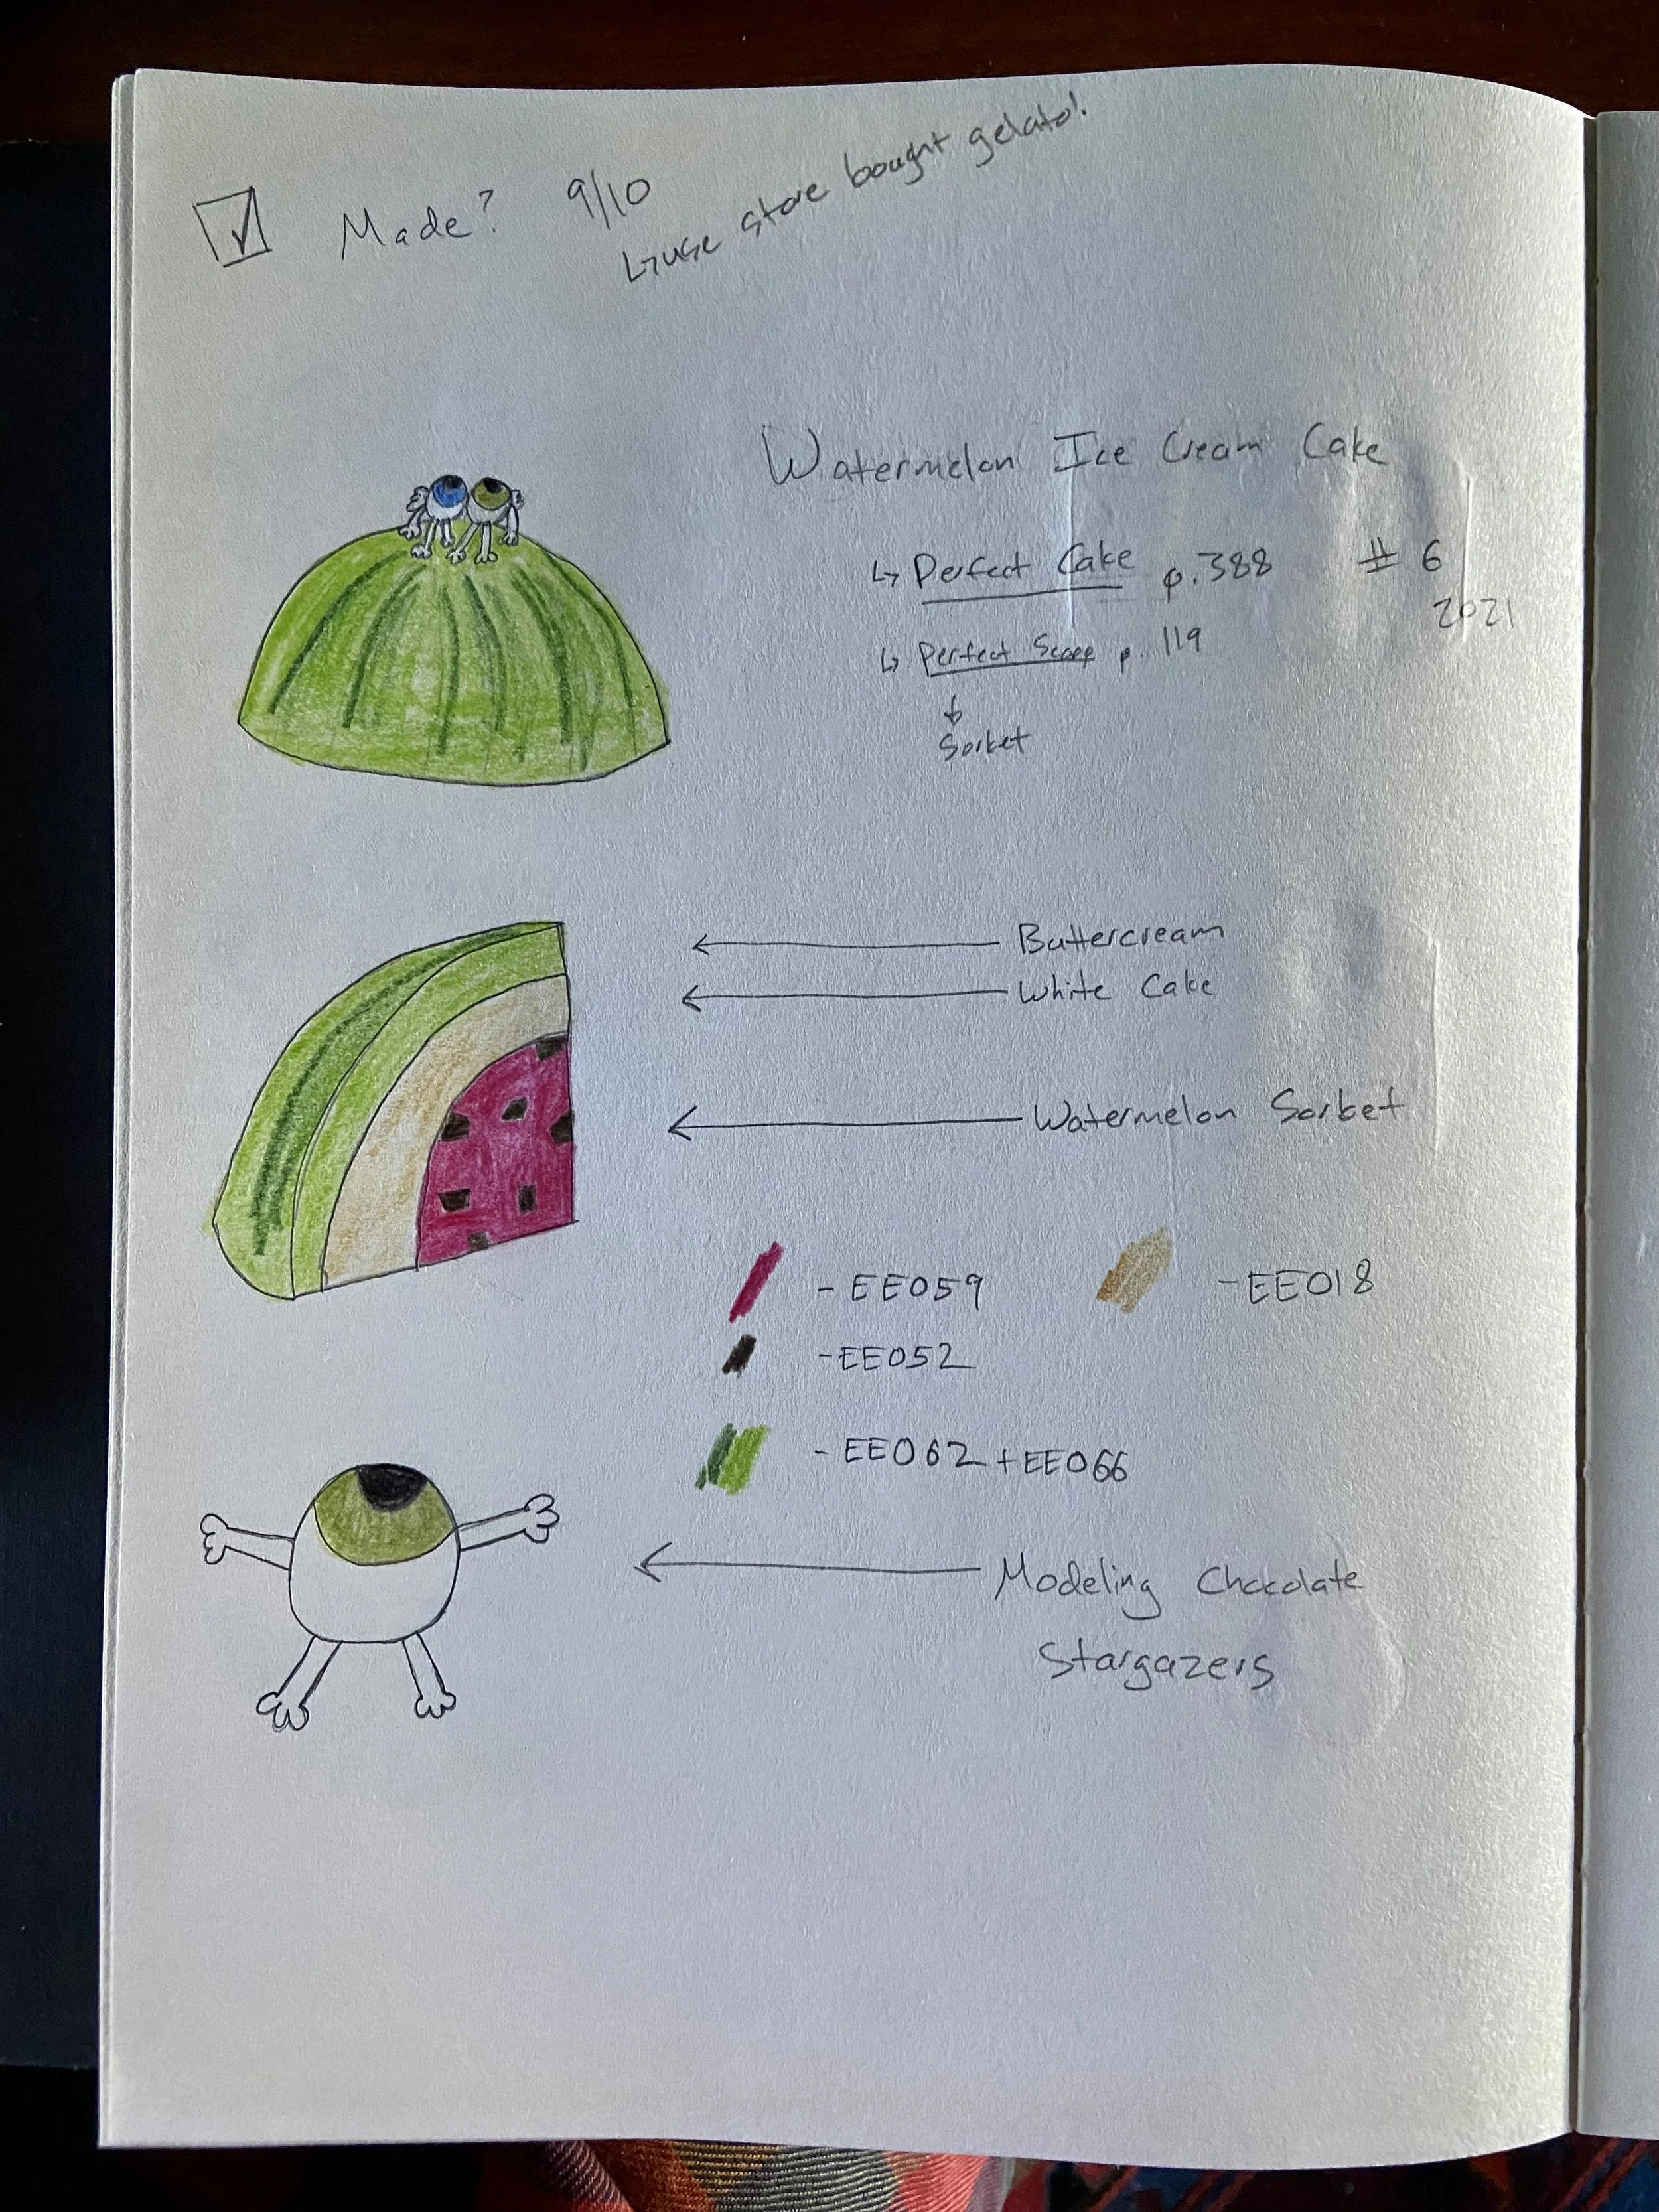 Made? 9/10
↳ use store bought gelato!
Watermelon Ice Cream Cake
↳ Perfect Cake p.388 # 6
2021
↳ Perfect Scoop p. 119
↓
Sorbet
Buttercream
White Cake
Watermelon Sorbet
- EE059 - EE018
- EE052
- EE062 + EE066
Modeling Chocolate
Stargazers